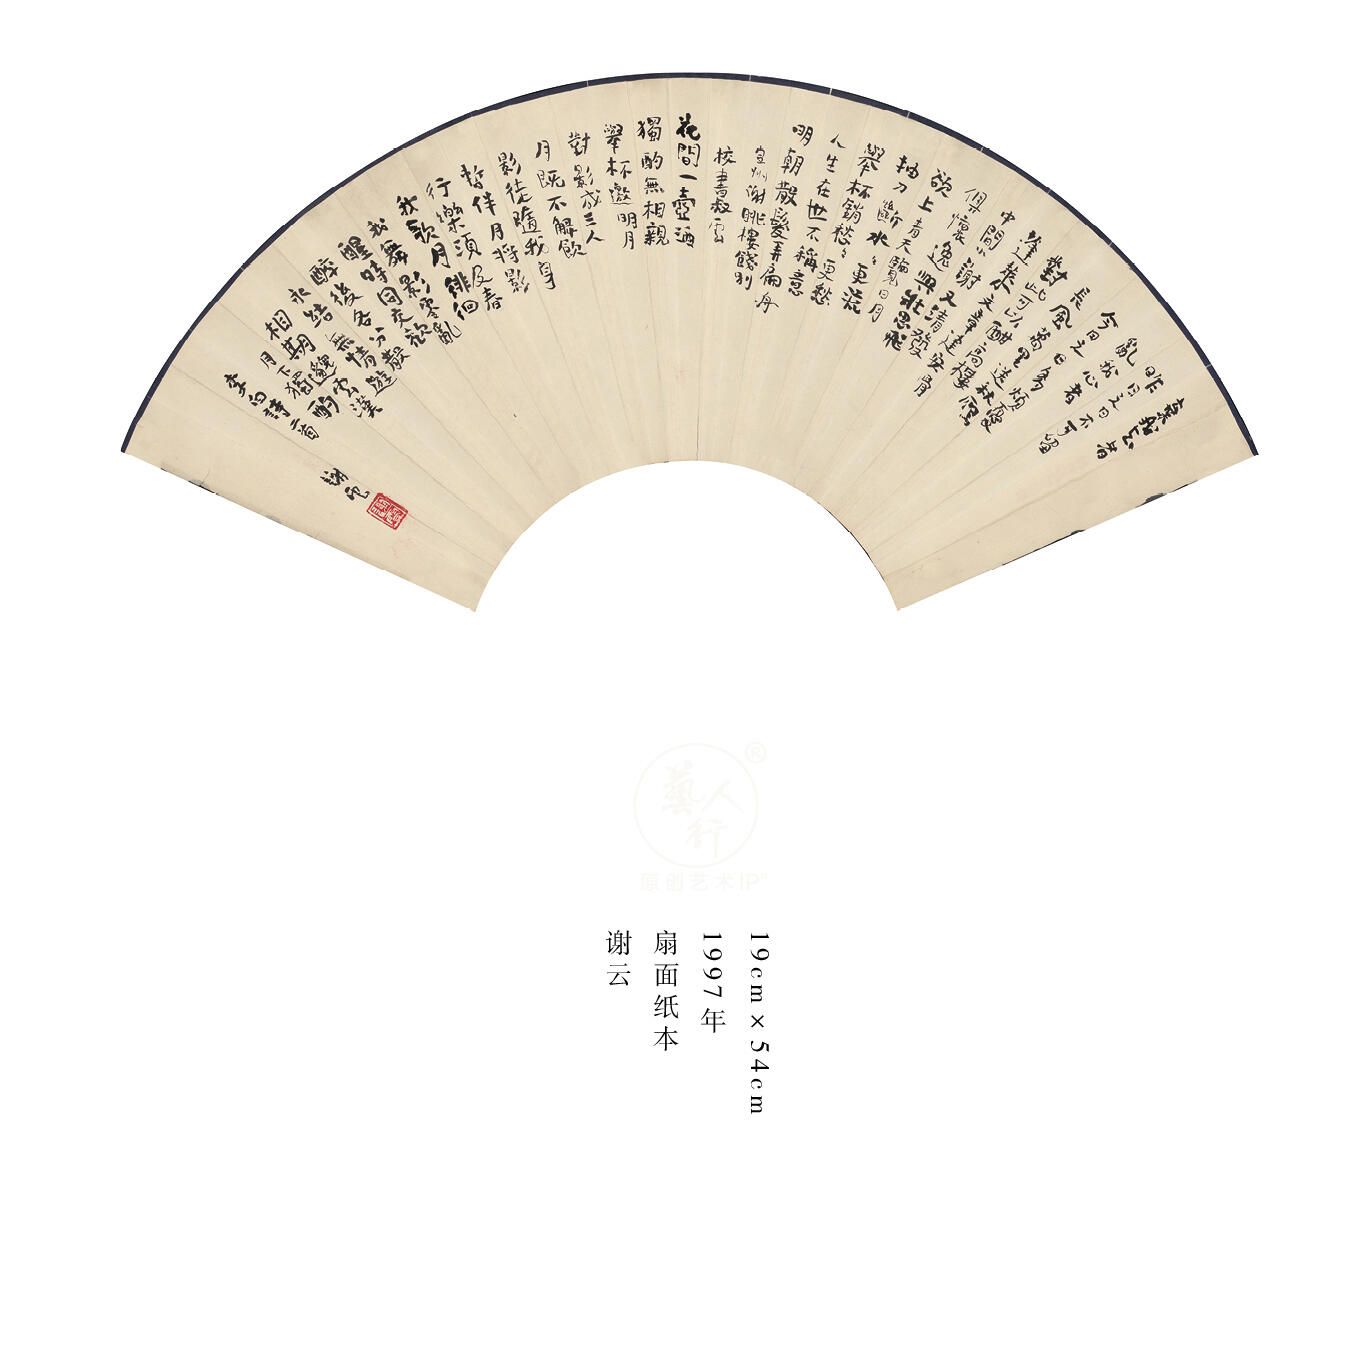 棄我去者
昨日之日不可留
亂我心者
今日之日多煩憂
長風萬里送秋雁
對此可以酣高樓
蓬萊文章建安骨
中間小謝又清發
俱懷逸興壯思飛
欲上青天覽日月
抽刀斷水々更流
舉杯銷愁々更愁
人生在世不稱意
明朝散髮弄扁舟
宣州謝朓樓餞別
校書叔雲
花間一壺酒
獨酌無相親
舉杯邀明月
對影成三人
月既不解飲
影徒隨我身
暫伴月將影
行樂須及春
我歌月徘徊
我舞影零亂
醒時同交歡
醉後各分散
永結無情遊
相期邈雲漢
月下獨酌
李白詩二首
謝雲
藝人行®
原创艺术IP
19cm×54cm
1997年
扇面纸本
谢云